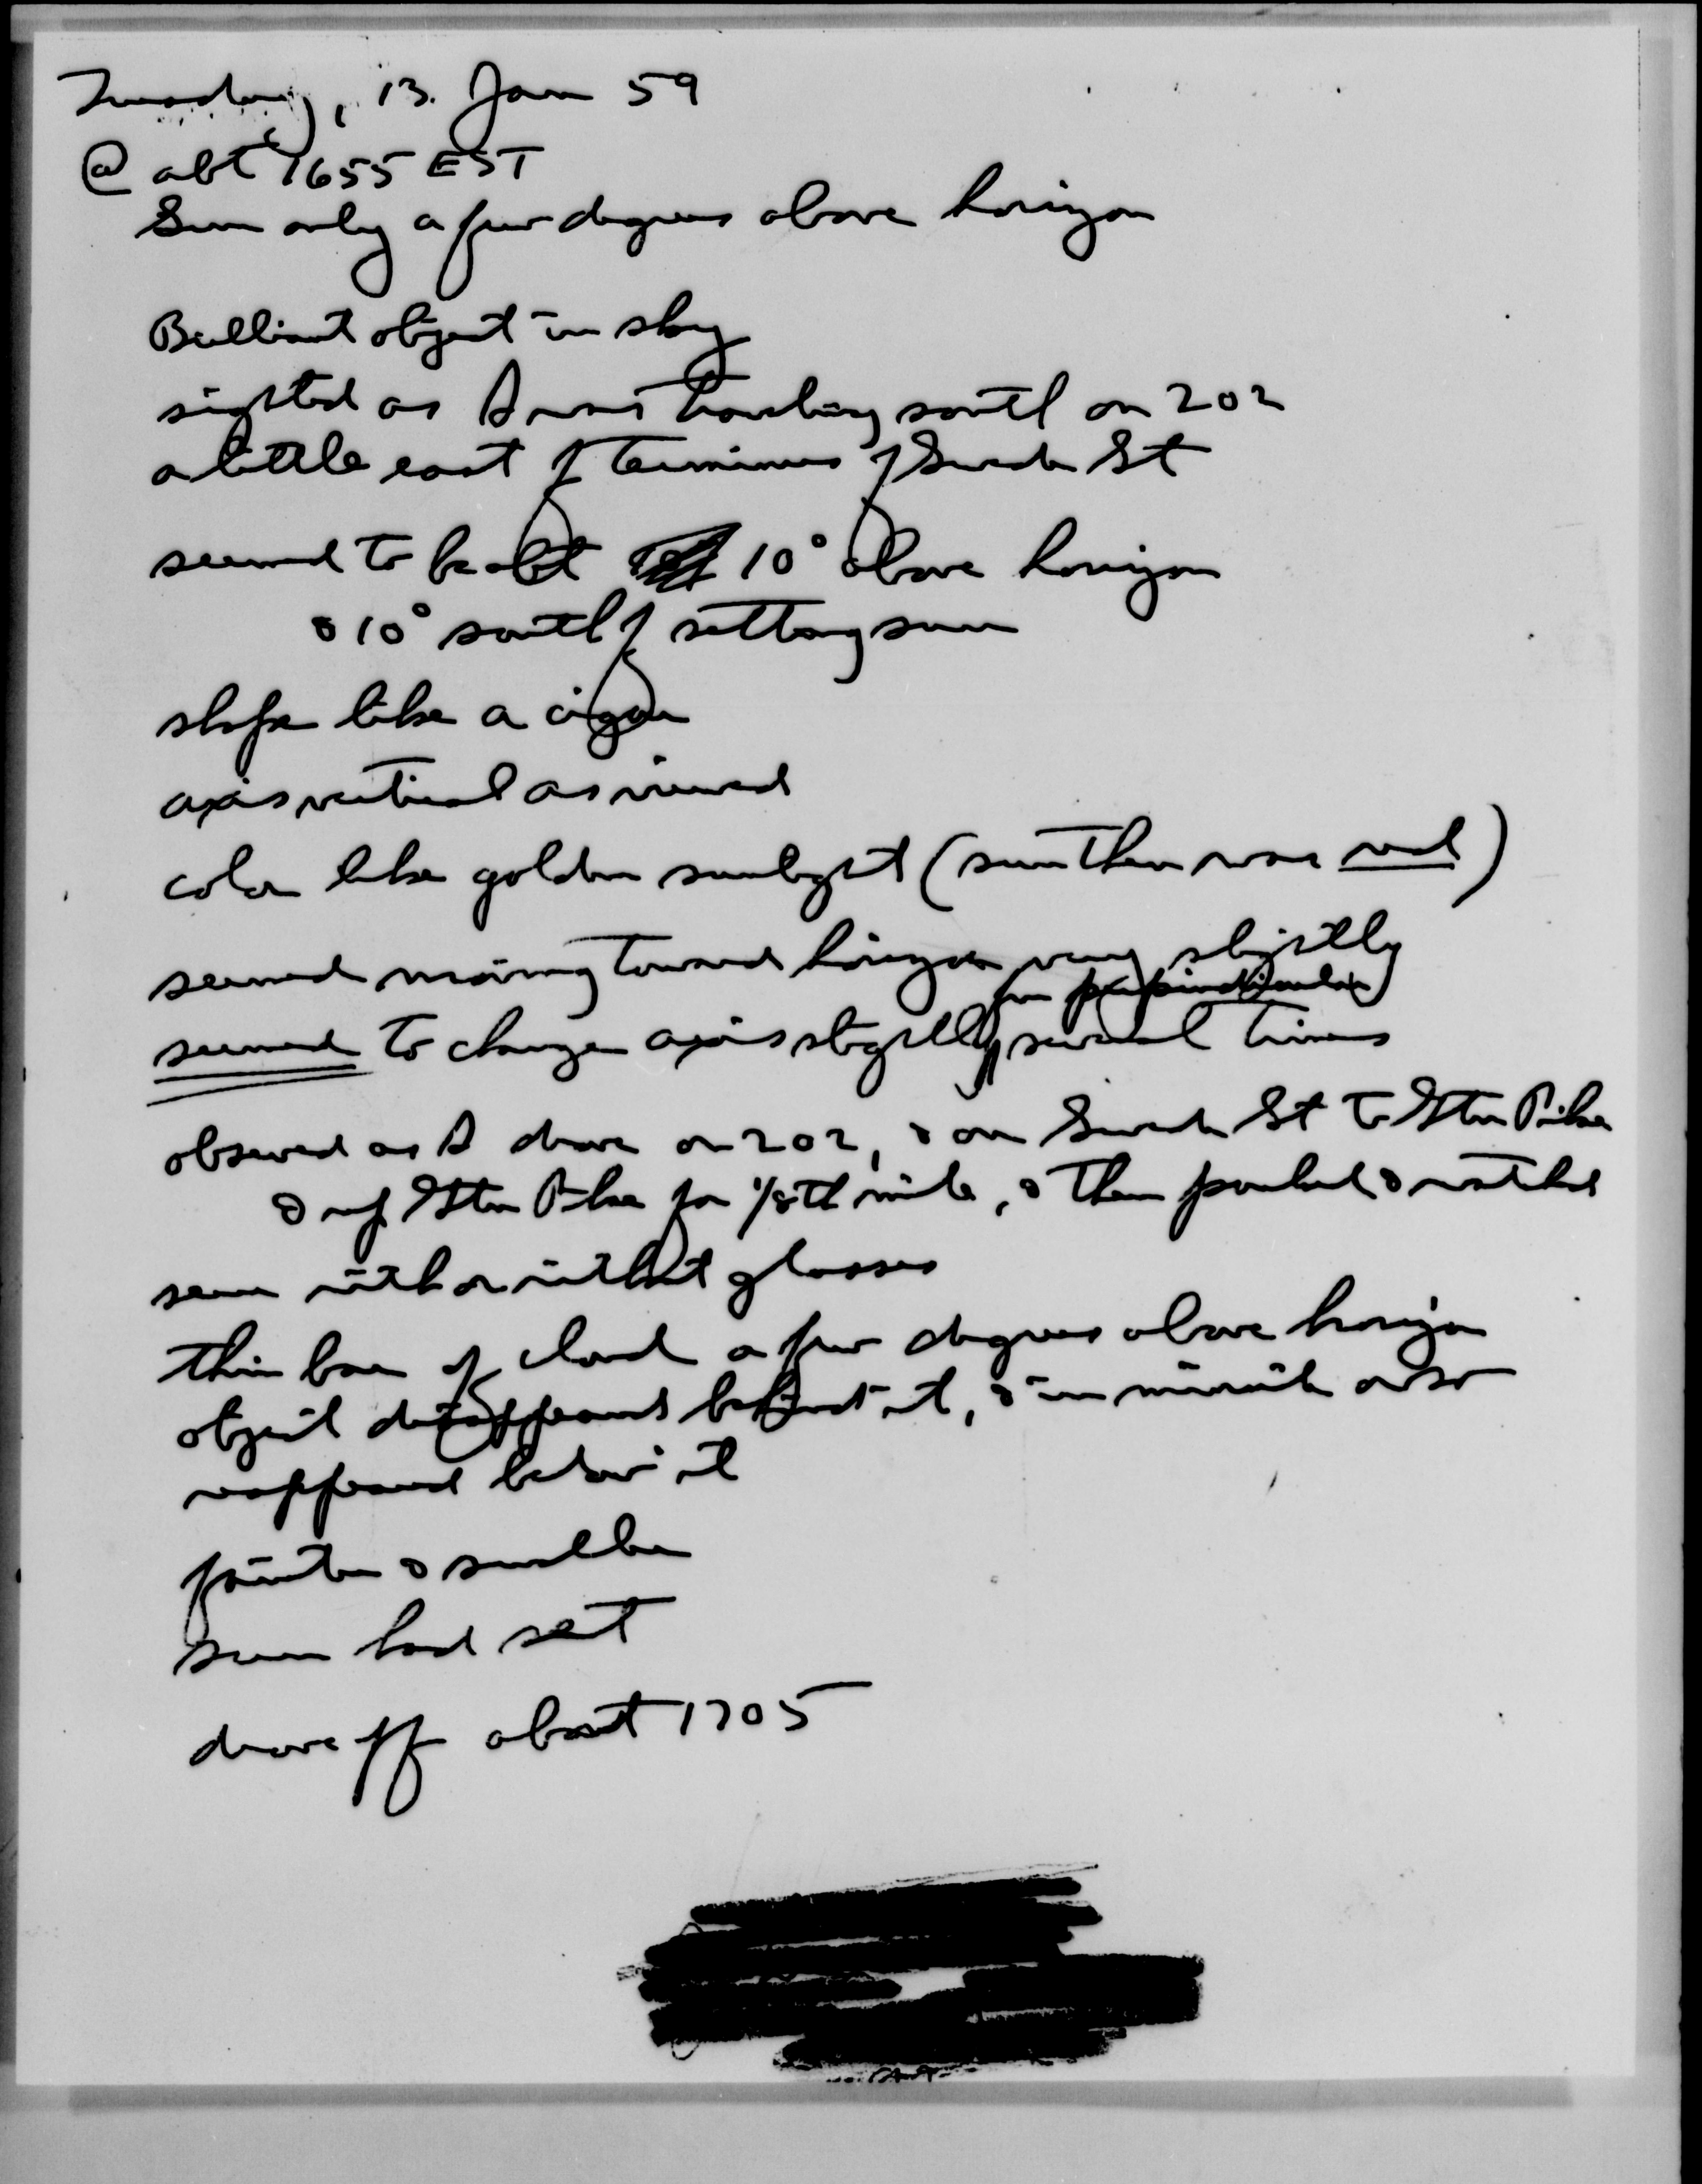 Tuesday, 13 Jan 59
@ abt 1655 EST
Sun only a few degrees above horizon
Brilliant object in sky
sighted as I was traveling south on 202
a little east of terminus of Swede St
seemed to be abt 10° above horizon
& 10° south of setting sun
shape like a cigar
axis vertical as viewed
color like golden sunlight (sun then was red)
seemed moving toward horizon very slightly
fm perpindicular
seemed to change axis slightly several times
observed as I drove on 202, & on Swede St to Gtn Pike
& up Gtn Pike for 1/8th mile, & then parked & watched
seen with or without glasses
thin bar of cloud a few degrees above horizon
object disappeared behind it, & in minute or so
reappeared below it
fainter & smaller
sun had set
drove off about 1705